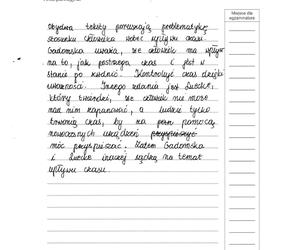 Miejsce dla
egzaminatora
Obydwa teksty poruszają problematykę
stosunku człowieka wobec upływu czasu.
Gadomska uważa, że człowiek ma wpływ
na to, jak postrzega czas i jest w
stanie go kontrolować czas dzięki
uważności. Innego zdania jest Suecke,
który twierdzi, że człowiek nie może
nad nim zapanować, a ludzie tylko
trwonią czas, by za pomocą
nowoczesnych urządzeń przyspieszyć
móc przyspieszać. Zatem Gadomska
i Suecke inaczej sądzą na temat
upływu czasu.